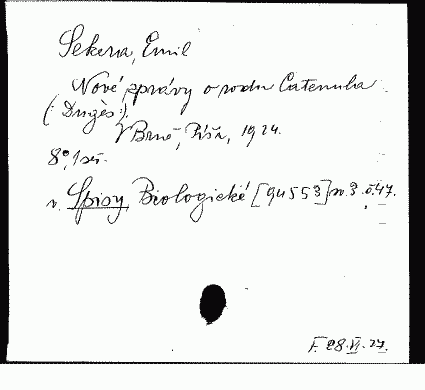 Sekera, Emil
Nové zprávy o rodu Catenula
(: Dugès:).
V Brně, Píša, 1924.
8°, 1 seš.
v. Spisy Biologické [94553] sv. 3. č. 47.
F. 28. VI. 27.